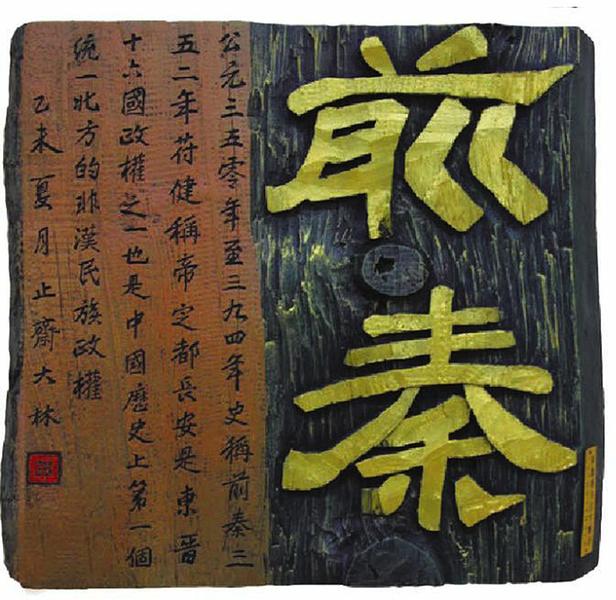 前秦
公元三五零年至三九四年史稱前秦三
五二年苻健稱帝定都長安是東晉
十六國政權之一也是中國歷史上第一個
統一北方的非漢民族政權
乙未夏月止齋大林